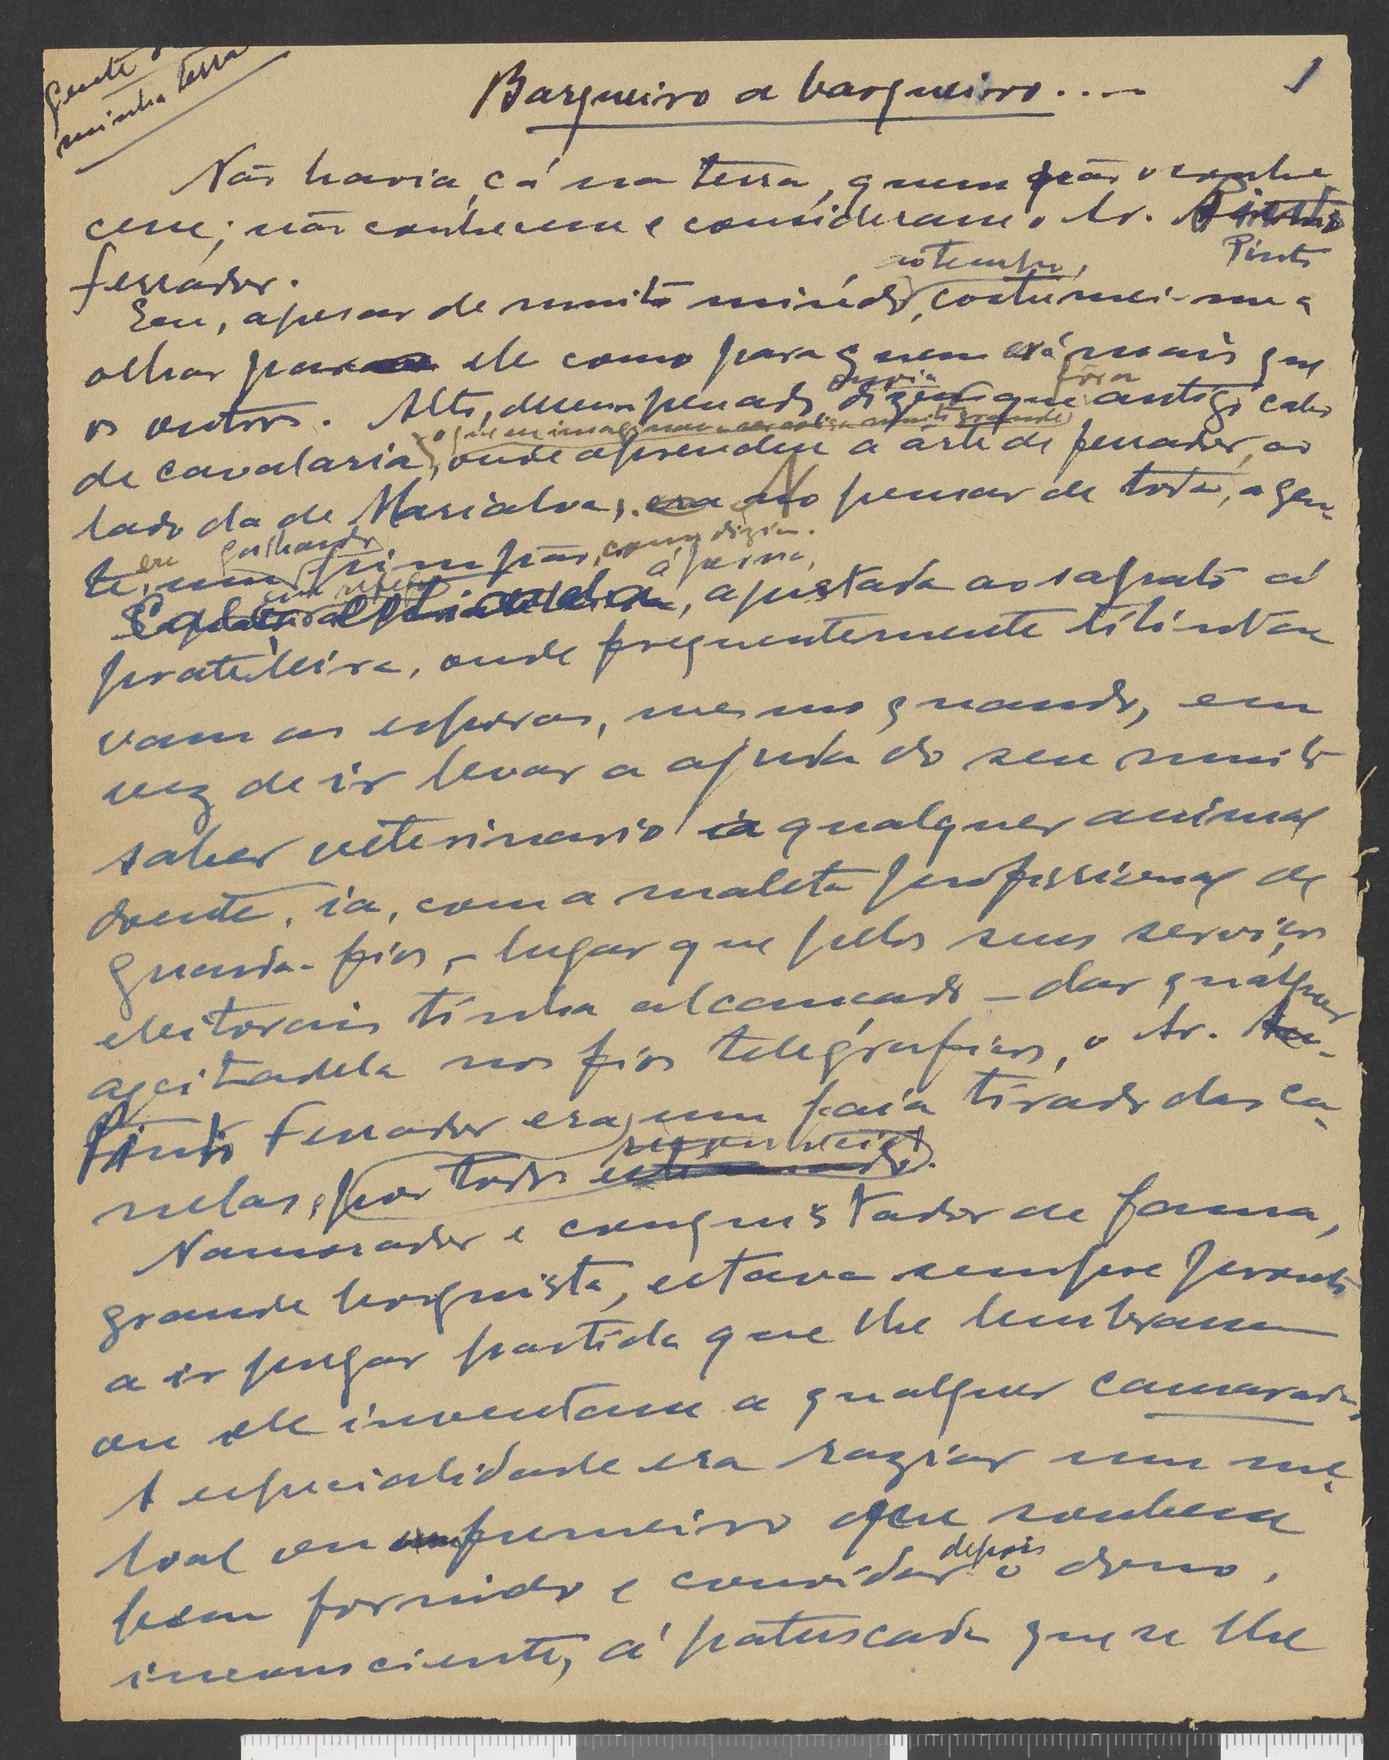 Gente d
minha terra
1
Barqueiro a barqueiro....
Não havia, cá na terra, quem não o conhe
cesse; não conhecesse e considerasse o Sr.
Pinto
ferrador.
no tempo,
Eu, apesar de muito miúdo, costumei-me a
olhar para ele como para quem era mais que
os outros. Alto, desempenado, dizem que antigo cabo
ouvia fôra
o que eu imaginava ser coisa muito grande
de cavalaria, onde aprendeu a arte de ferrador, ao
lado da de Marialva, era no pensar de toda, a gen-
te, um
era
como diziam.
á perna,
, ajustada ao sapato d
prateleira, onde frequentemente tilinta
vam as esporas, mesmo quando, em
vez de ir levar a ajuda do seu muito
saber veterinario a qualquer animal
doente, ia, com a maleta profissional de
guarda-fios, – lugar que pelos seus serviços
eleitorais tinha alcançado – dar qualquer
ageitadela nos fios telégraficos, o Sr.
Pinto Ferrador era, um faia tirado das ca-
nelas, por todos
reconhecido.
Namorador e conquistador de fama,
grande borguista, estava sempre pronto
a ir pregar partida que lhe lembrassem
ou ele inventasse a qualquer camarada.
A especialidade era raziar um me-
loal ou um fumeiro que soubesse
bem fornido e convidar depois o dono,
inconsciente, á patuscada que se lhe